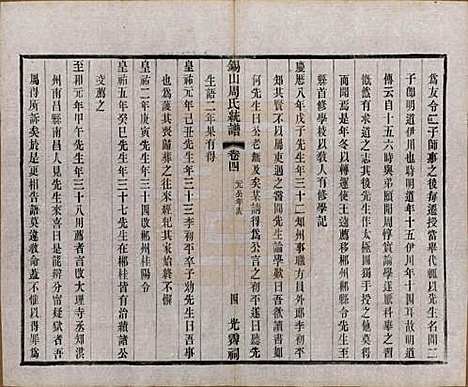 為友令二子師事之後每遷授當舉代輒以先生名聞二
子卽明道伊川也時明道年十五伊川年十四耳明道
傳云自十五六時與弟頤聞周茂叔論學遂厭科舉之習
慨然有求道之志其後先生作太極圖獨手授之他莫得
而聞焉是冬以轉運使王逵薦移郴州郴縣令至
縣首修學校以敎人有修學記
慶厯八年戊子先生年三十二知州事職方員外郎李初平
知其賢不以屬吏遇之嘗聞先生論學歎曰吾欲讀書如
何先生曰公老無及矣某請得爲公言之初平遂日聽先
錫山周氏統譜 卷四 元公年表 四 光霽祠
生語二年果有得
皇祐元年己丑先生年三十三李初平卒子幼先生曰吾事
也爲護其喪歸葬之往來經紀其家始終不懈
皇祐二年庚寅先生年三十四改郴州桂陽令
皇祐五年癸巳先生年三十七先生在郴桂皆有治績諸公
交薦之
至和元年甲午先生年三十八用薦者言改大理寺丞知洪
州南昌縣南昌人見先生來喜曰是能辨分甯獄者吾
屬得所訴矣於是更相告語莫違敎命蓋不惟以得罪爲